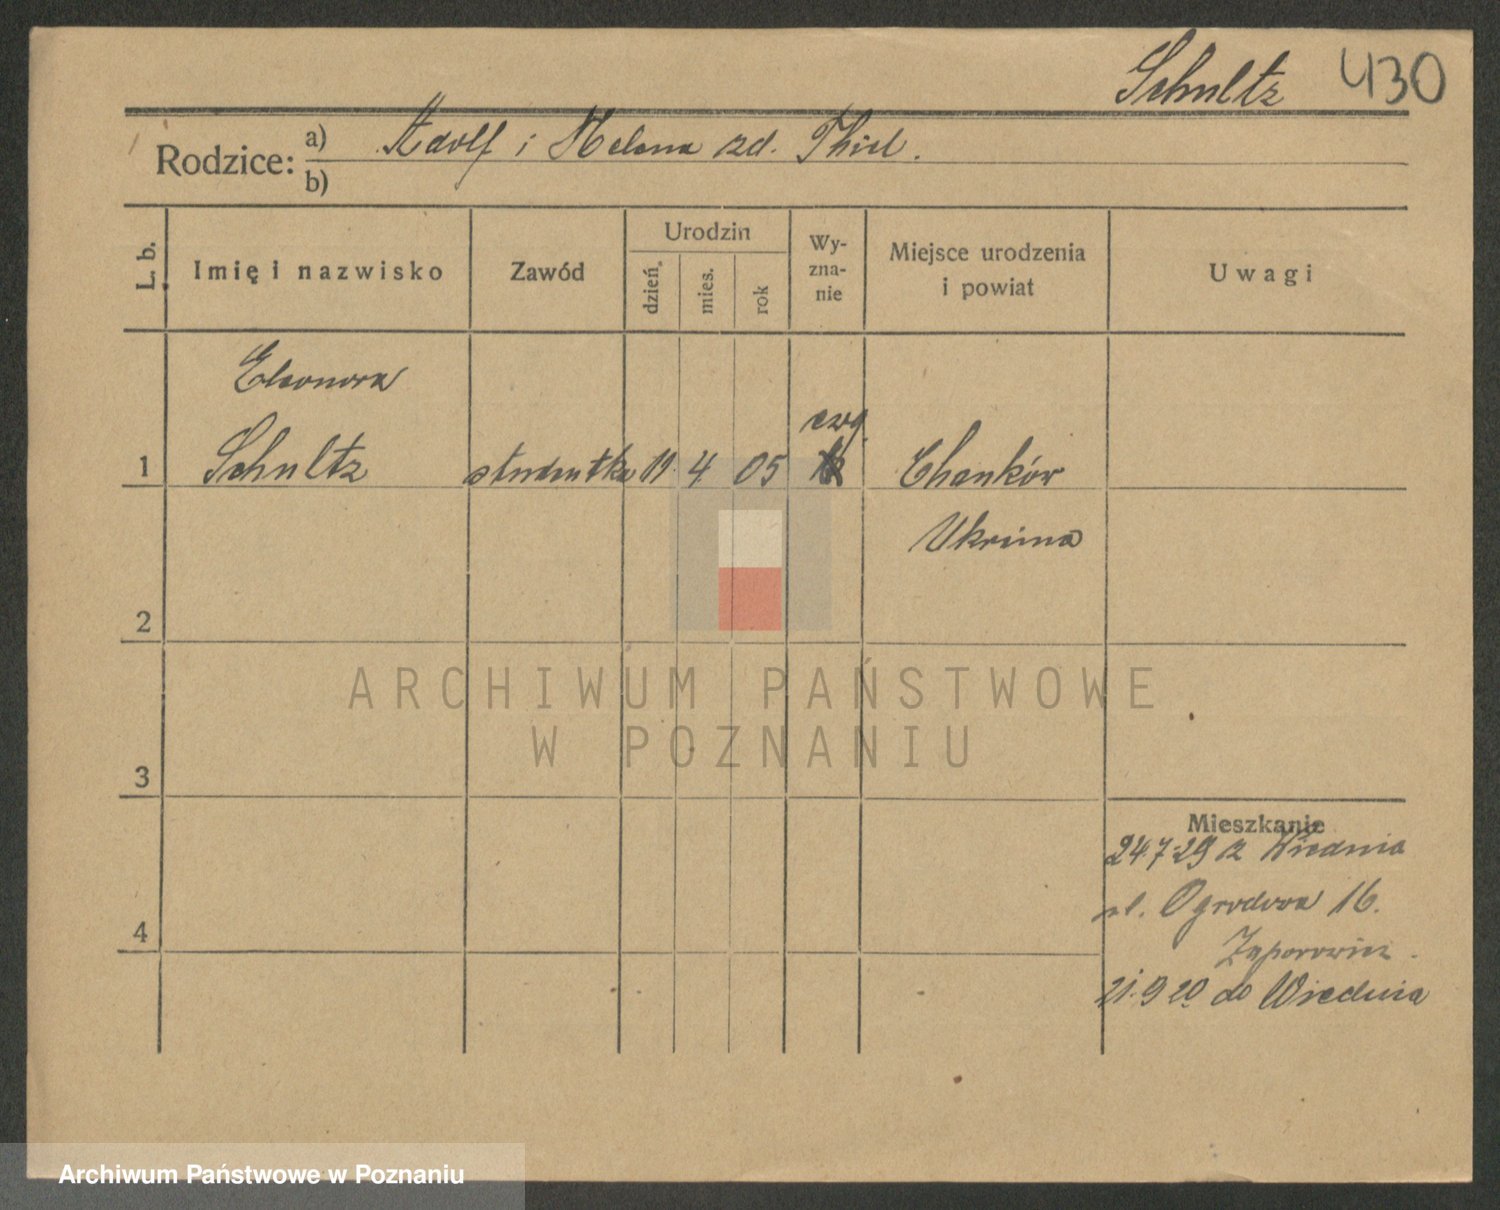 Schultz 430
Rodzice: a) Adolf i Helena zd. Thiel.
b)
L. b.
Imię i nazwisko
Zawód
Urodzin
dzień.
mies.
rok
Wy-
zna-
nie
Miejsce urodzenia
i powiat
Uwagi
Eleonora
ewg.
1 Schultz studentka 11. 4 05 Charków
Ukraina
2
ARCHIWUM PAŃSTWOWE
W POZNANIU
3
Mieszkanie
24.7.29 z Wiednia
ul. Ogrodowa 16.
4
21.9 29 do Wiednia
Archiwum Państwowe w Poznaniu